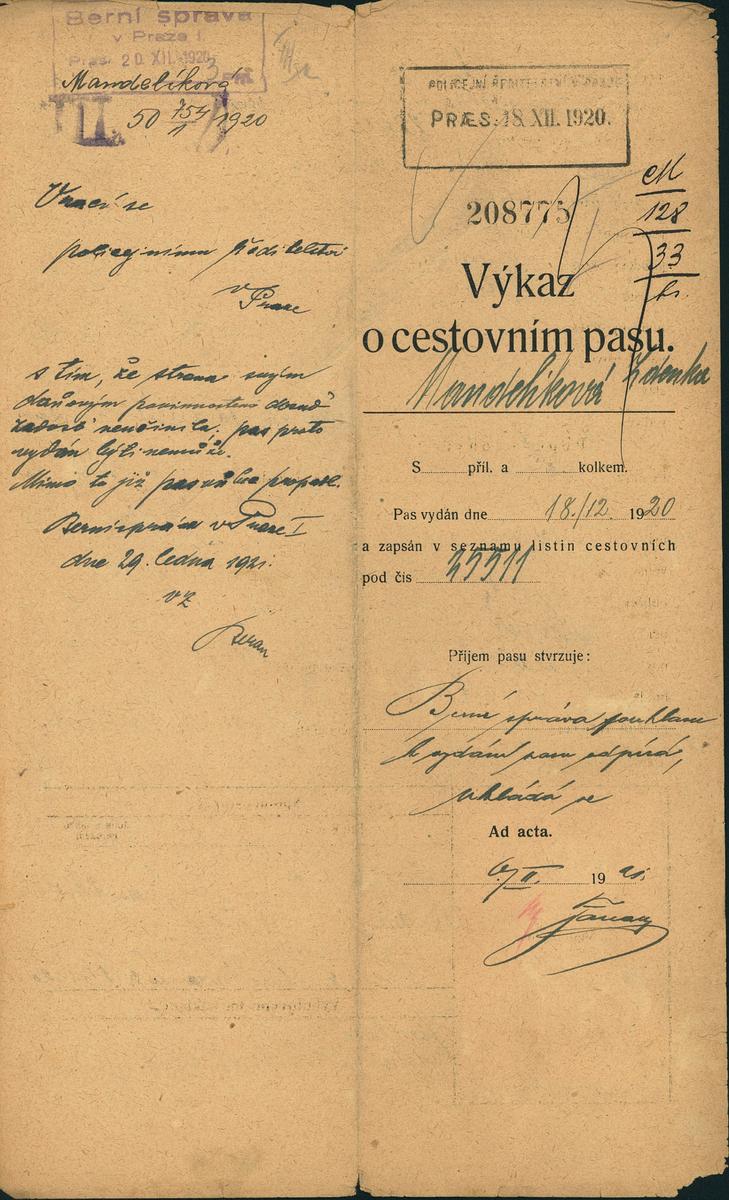 Berní správa
v Praze I.
Präs. 20. XII. 1920
Mandelíková
50 754/1 1920
Vrací se
policejnímu ředitelství
v Praze
s tím, že strana svým
daňovým povinnostem dosud
zadost neučinila. pas proto
vydán býti nemůže.
Mimo to již propadl.
Berní správa v Praze I
dne 29. ledna 1921.
vz
Beran
POLICEJNÍ ŘEDITELSTVÍ V PRAZE
PRÆS. 18. XII. 1920.
208775
M
128
33
Výkaz
o cestovním pasu.
Mandelíková Zdenka
S příl. a kolkem.
Pas vydán dne 18./12. 1920
a zapsán v seznamu listin cestovních
pod čís 35511
Příjem pasu stvrzuje:
Berní správa souhlasu
k vydání pasu odpírá,
ukládá se
Ad acta.
II. 1921.